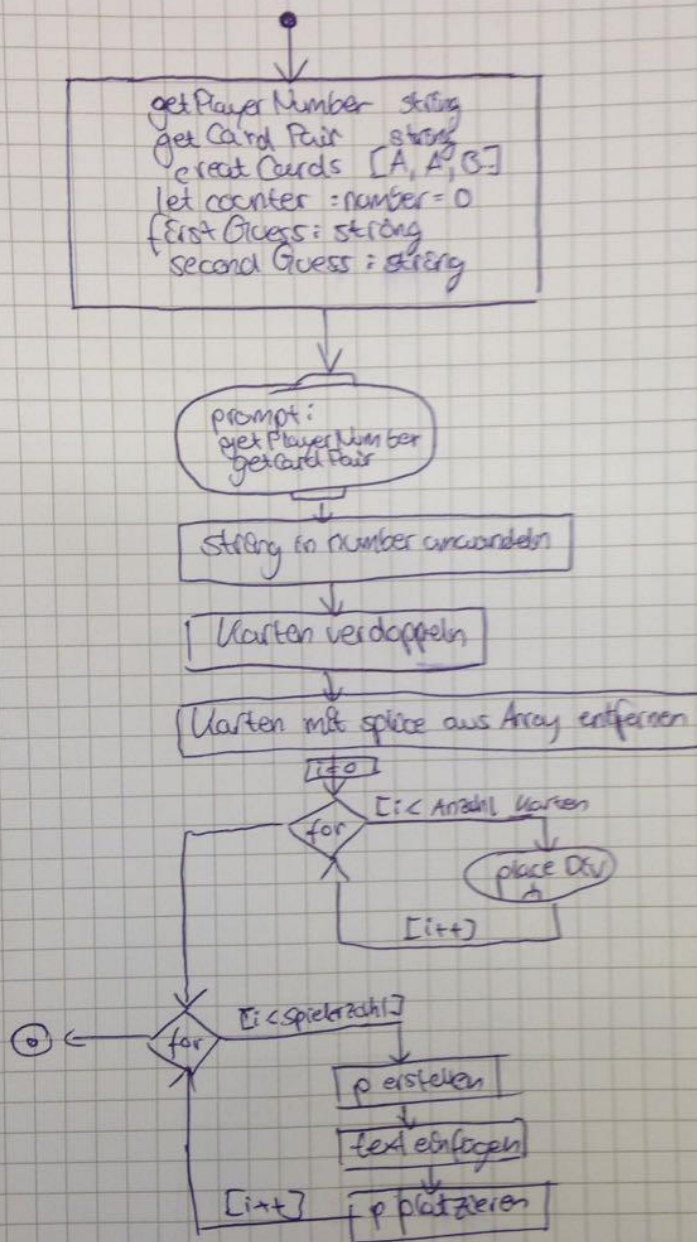 getPlayerNumber string
get Card Pair string
creat Cards [A, A, B]
let counter :number = 0
first Guess : string
second Guess : string
prompt:
getPlayerNumber
getCardPair
string in number umwandeln
Karten verdoppeln
Karten mit splice aus Array entfernen
[i=0]
for
[i < Anzahl Karten
place DIV
[i++]
for
[i < Spielerzahl]
p erstellen
text einfügen
p platzieren
[i++]